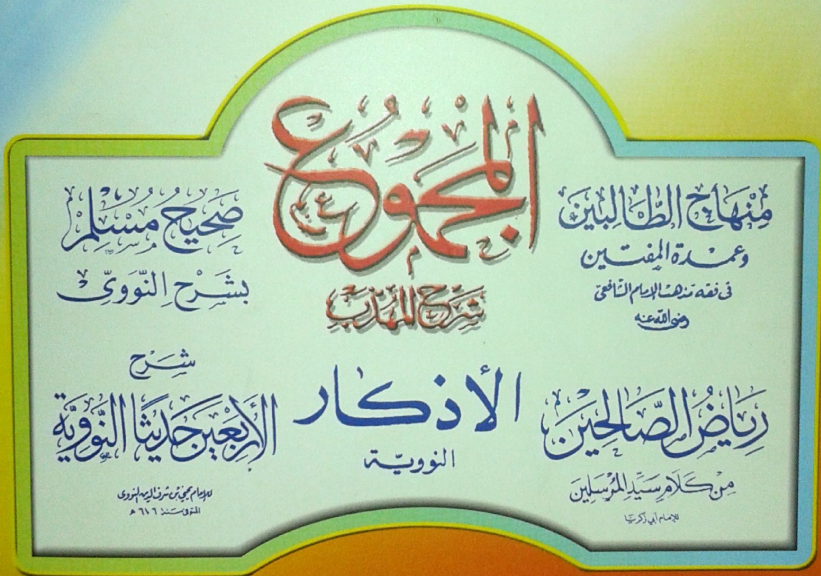 المجموع
شرح المهذب
منهاج الطالبين
وعمدة المفتين
في فقه مذهب الإمام الشافعي
رضي الله عنه
صحيح مسلم
بشرح النووي
رياض الصالحين
من كلام سيد المرسلين
للإمام أبي زكريا
الأذكار
النووية
شرح
الأربعين حديثا النووية
للإمام يحيى بن شرف الدين النووي
المتوفى سنة ٦٧٦ هـ